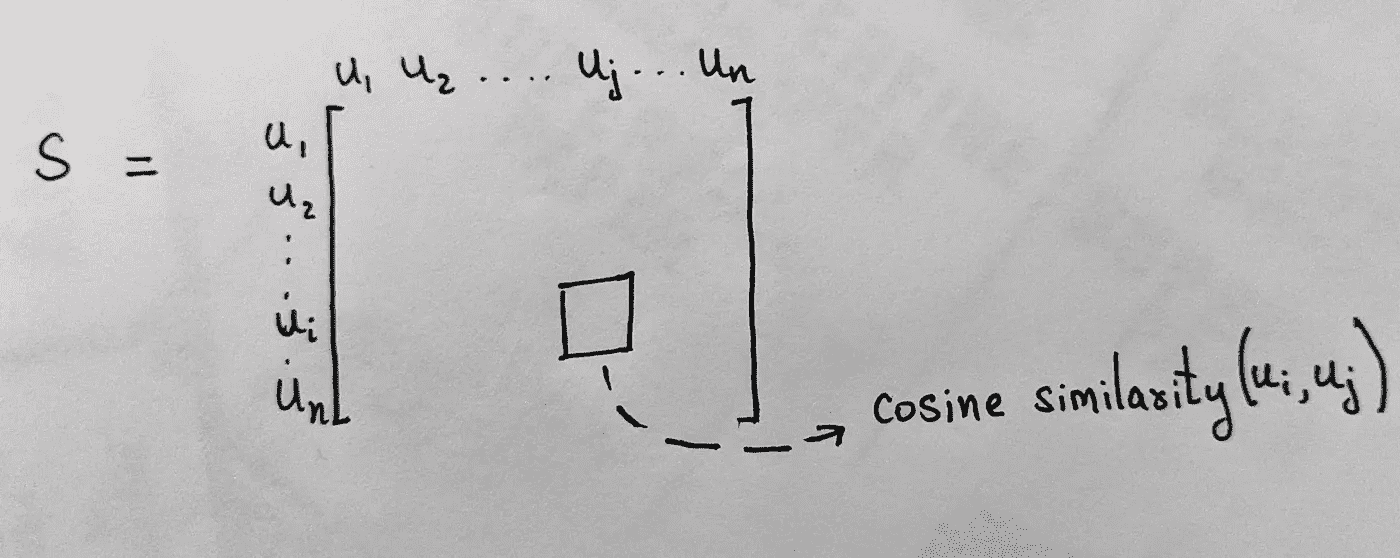 u₁ u₂ .... uⱼ ... uₙ
S =
u₁
u₂
⋮
uᵢ
.
uₙ
cosine similarity (uᵢ, uⱼ)